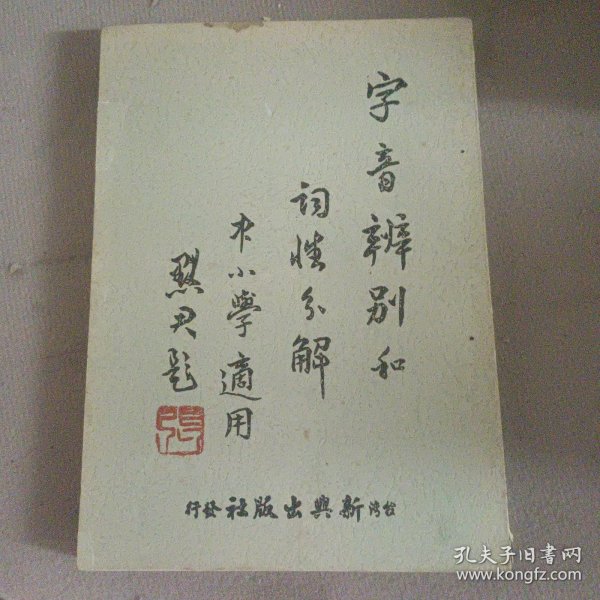 字音辨別和
詞性分解
中小學適用
烈君題
張
台湾新興出版社發行
孔夫子旧书网
www.kongfz.com